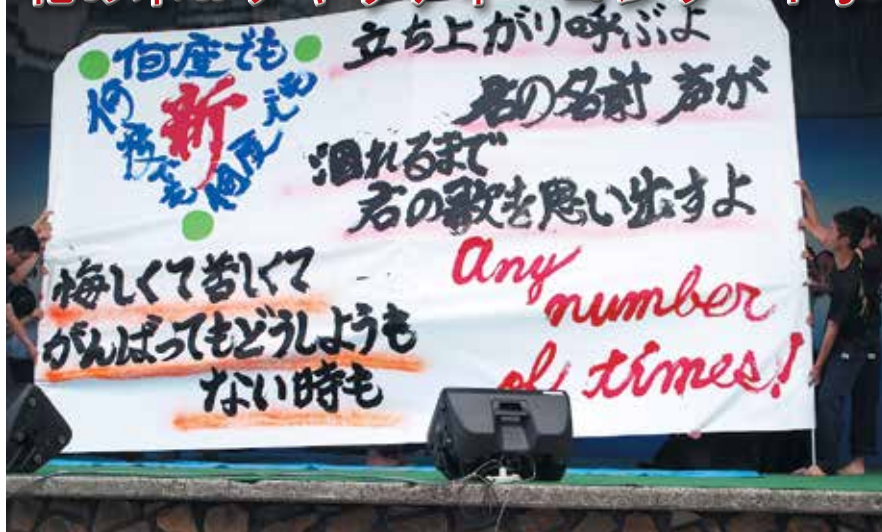 何度でも
何度でも
何度でも
新
立ち上がり呼ぶよ
君の名前 声が
涸れるまで
君の歌を思い出すよ
悔しくて苦しくて
がんばってもどうしようも
ない時も
any
number
of times!